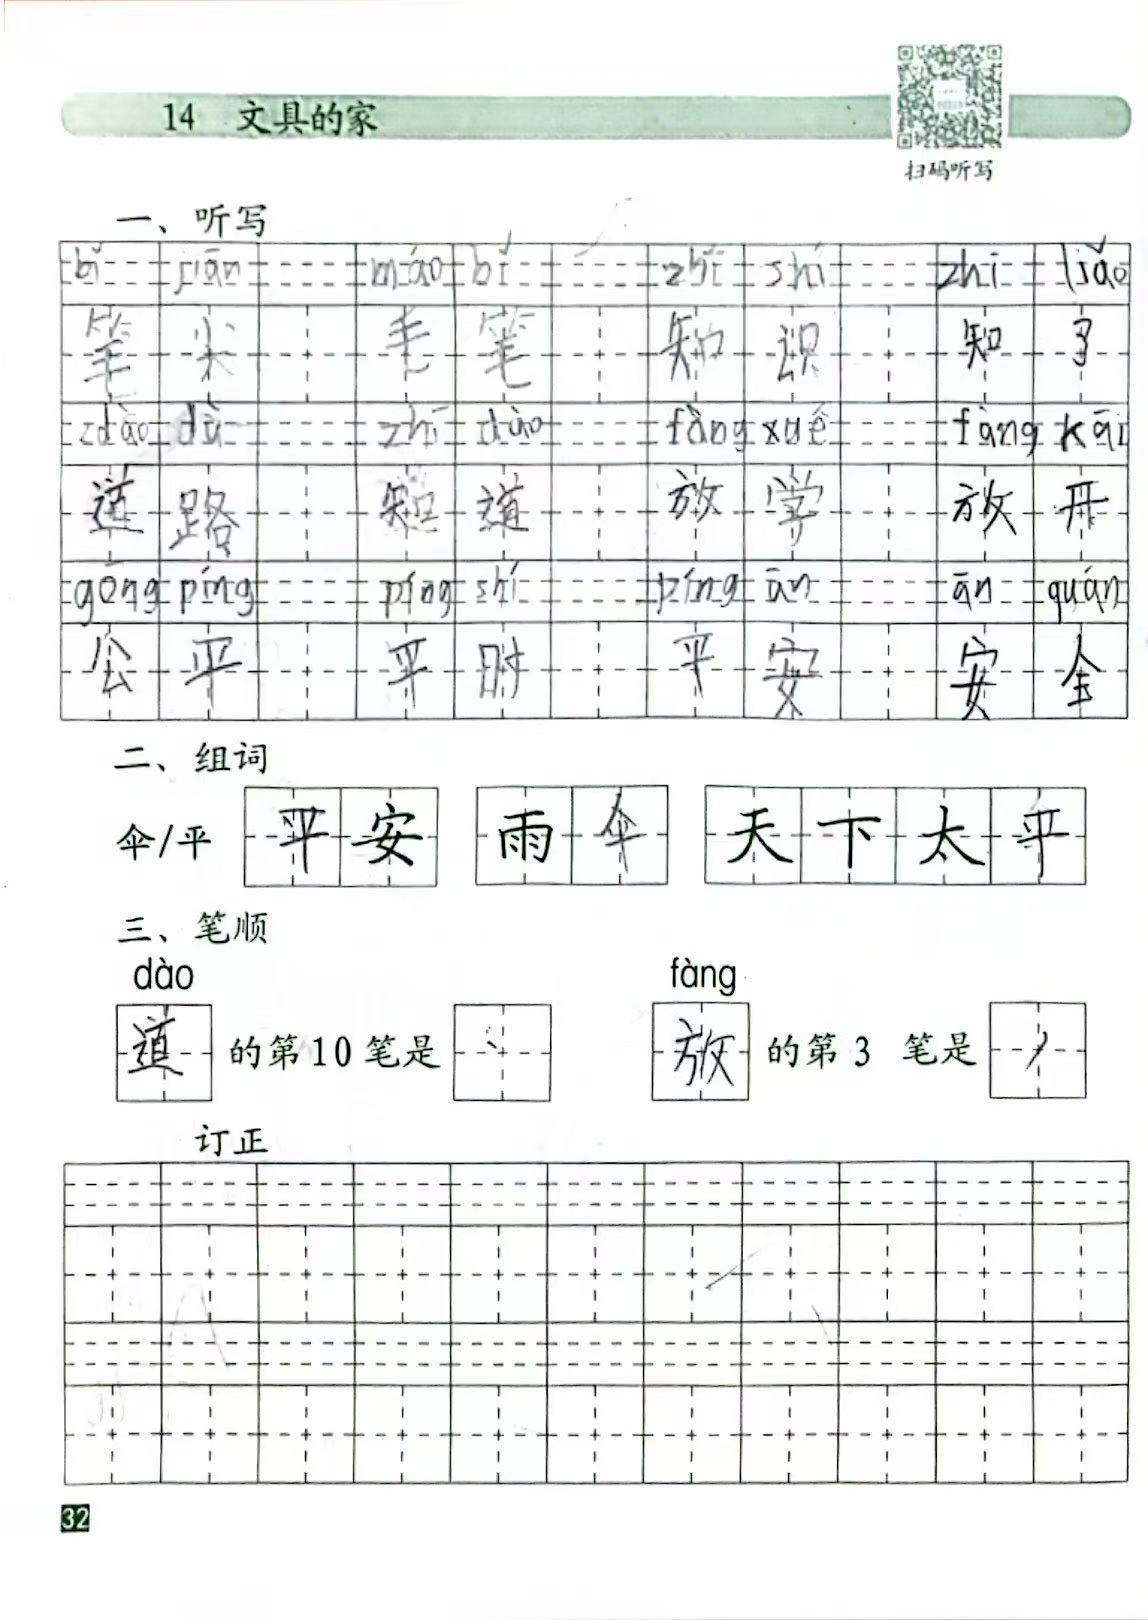 14 文具的家
扫码听写
一、听写
bǐ jiān máo bǐ zhī shí zhī liǎo
笔 尖 毛 笔 知 识 知 了
dào dù zhī dào fàng xué fàng kāi
道 路 知 道 放 学 放 开
gōng píng píng shí píng ān ān quán
公 平 平 时 平 安 安 全
二、组词
伞/平 平安 雨伞 天下太平
三、笔顺
dào fàng
道 的第10笔是 丶 放 的第3 笔是 丿
订正
32